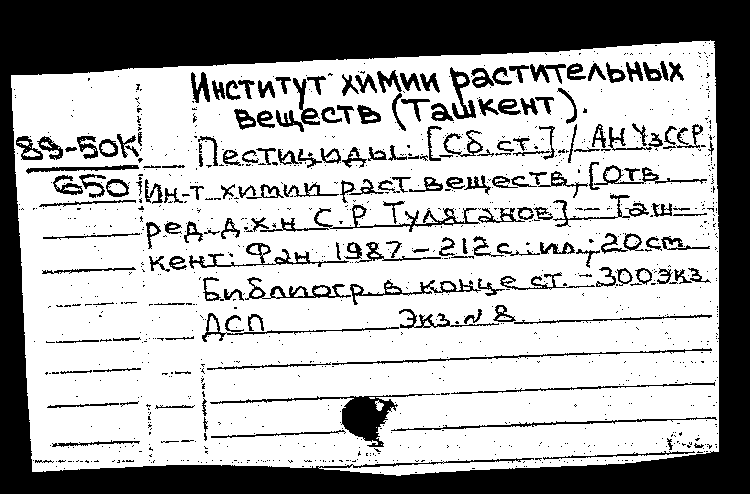 Институт химии растительных
веществ (Ташкент).
89-50К
650
Пестициды: [Сб. ст.] / АН УзССР,
Ин-т химии раст. веществ; [Отв.
ред. д.х.н С.Р Туляганов] - Таш-
кент: Фан, 1987 - 212 с.: ил.; 20 см.
Библиогр. в конце ст. - 300 экз.
ДСП Экз. № 8